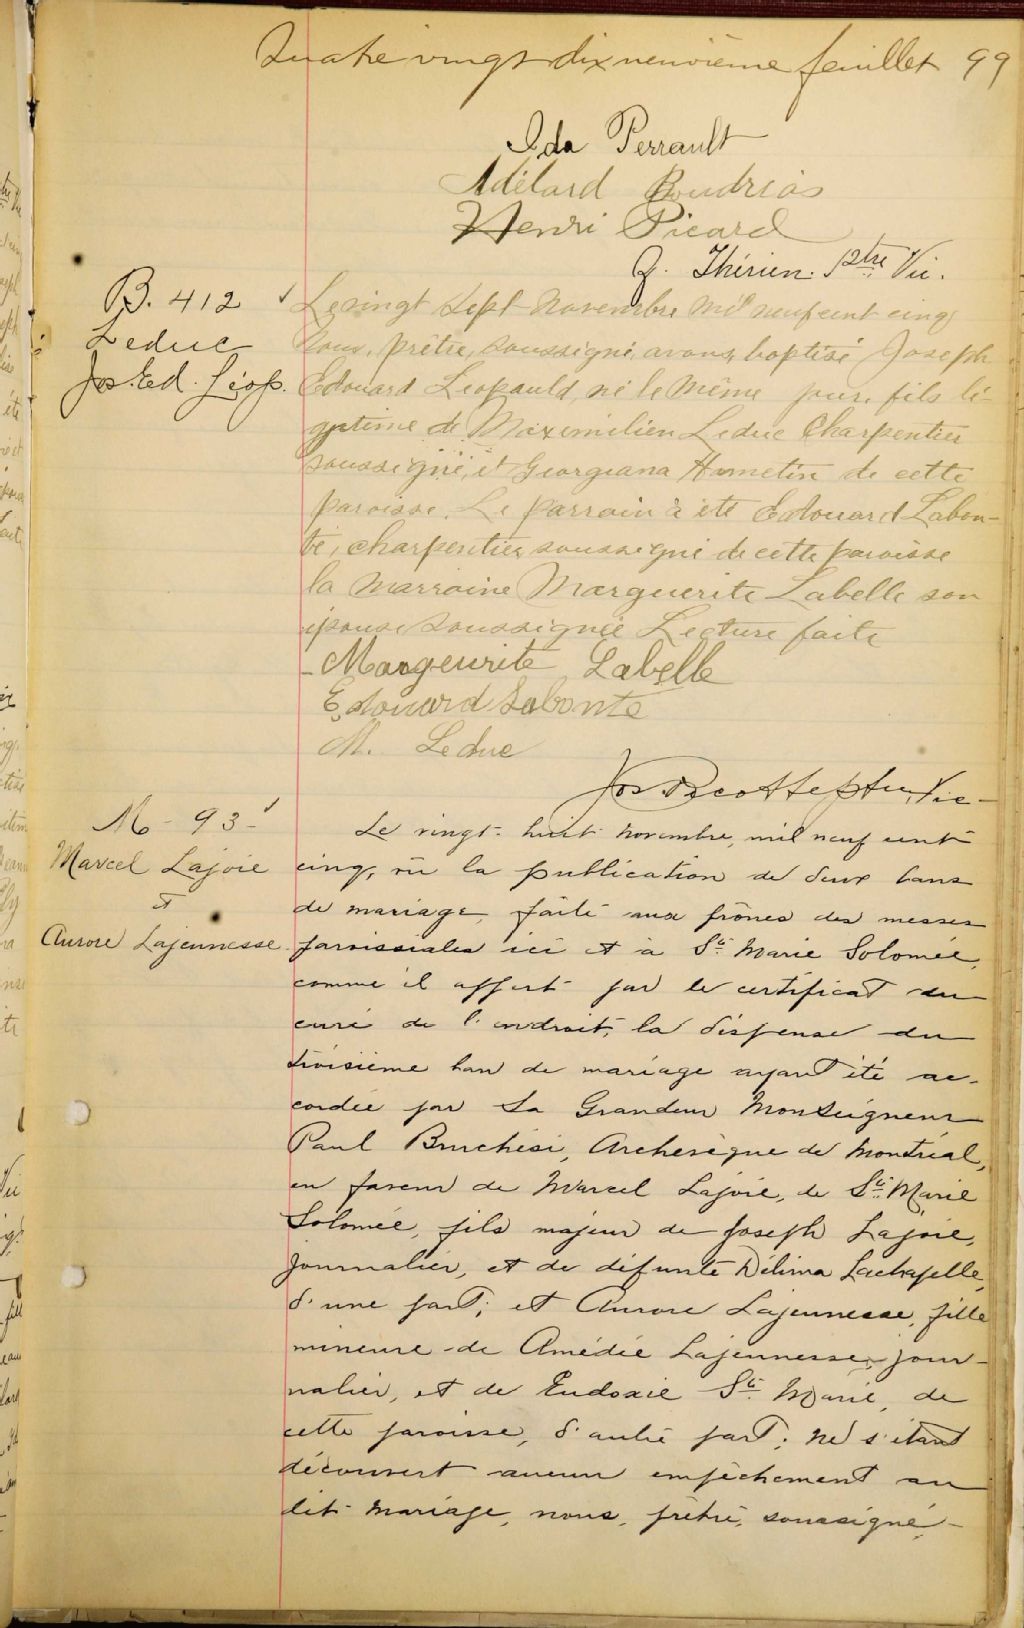 Quatre vingt dix neuvième feuillet 99
Ida Perrault
Adélard Boudrias
Henri Picard
Thérien. Ptre Vic.
B. 412
Leduc
Jos. Ed. Léop.
Le vingt Sept Novembre mil neuf cent cinq
nous, prêtre, soussigné, avons baptisé Joseph
Edouard Leopauld, né le même jour, fils lé-
gitime de Maximilien Leduc Charpentier
soussigné, et Georgiana Hametin de cette
paroisse. Le parrain à été Edouard Labon-
té, charpentier soussigné de cette paroisse
la marraine Marguerite Labelle son
épouse soussignée Lecture faite
Margeurite Labelle
Edouard Labonte
M. Leduc
Jos Vic-
M - 93 -
Marcel Lajoie
et
Aurore Lajeunesse
Le vingt-huit novembre, mil neuf cent
cinq, vu la publication de deux bans
de mariage, faite aux prônes des messes
paroissiales ici et à Ste Marie Solomée,
comme il appert par le certificat du
curé de l'endroit, la dispense du
troisième ban de mariage ayant été ac-
cordée par Sa Grandeur Monseigneur
Paul Bruchési, Archevêque de Montréal,
en faveur de Marcel Lajoie, de Ste Marie
Solomée, fils majeur de Joseph Lajoie,
journalier, et de défunte Délima Lachapelle,
d'une part; et Aurore Lajeunesse, fille
mineure de Amédée Lajeunesse, jour-
nalier, et de Eudoxie Ste Marie, de
cette paroisse, d'autre part; ne s'étant
découvert aucun empêchement au
dit mariage, nous, prêtre, soussigné,